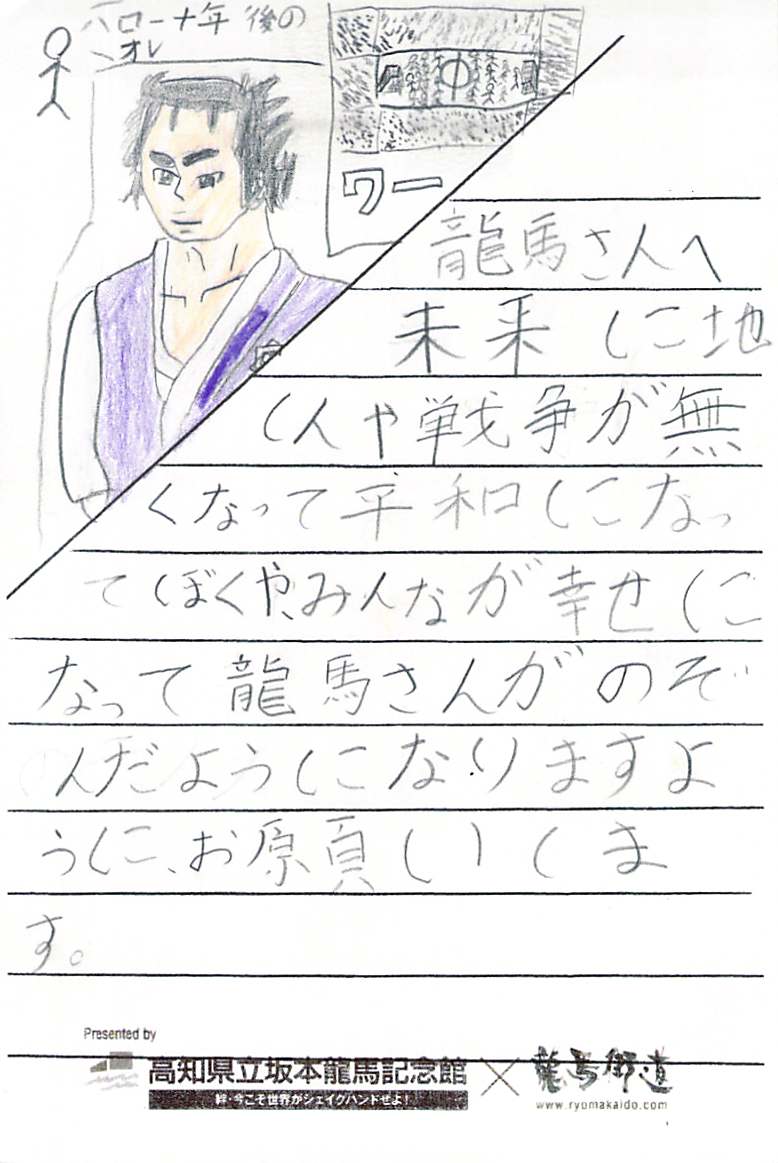 ハロー十年後の
オレ
ワー
龍馬さんへ
未来に地
しんや戦争が無
くなって平和になっ
てぼくや、みんなが幸せに
なって龍馬さんがのぞ
んだようになりますよ
うに、お願いしま
す。
Presented by
高知県立坂本龍馬記念館×龍馬街道
絆・今こそ世界がシェイクハンドせよ!
www.ryomakaido.com